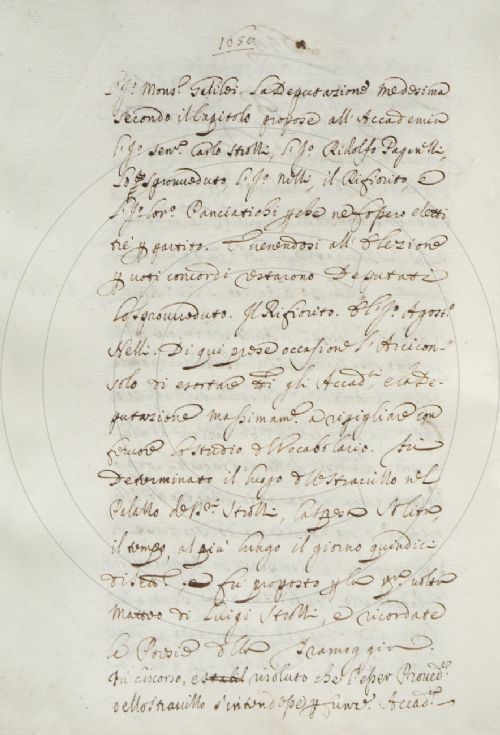 1650
S.r Mons.r Galilei. La Deputazione medesima
secondo il Capitolo propose all'Accademia
il S.r Sen.r Carlo Strozzi, il S.r Ridolfo Paganelli,
Lo Sprovveduto, il S.r Nelli, il Rifiorito, e
il S.r Lor.o Panciatichi perche ne fossero eletti
trè per partito. E venendosi all'Elezione
per voti concordi restarono Deputati
Lo Sprovveduto. Il Rifiorito. E il S.r Agost.o
Nelli. Di qui prese occasione l'Arcicon-
solo di esortare tutti gli Accad.ci e la De-
putazione massimam.e a ripigliare con
fervore lo studio del Vocabolario. Fù
determinato il luogo dello stravizzo nel
Palazzo de SS.ri Strozzi, la spesa solita,
il tempo, al più lungo il giorno quindici
di Sett.e, e fu proposto per la p.a volta
Matteo di Luigi Strozzi, e ricordate
le Poesie della Tramoggia.
Fù discorso, e stabil. risoluto che l'esser Proved.re
dello stravizzo s'intendesse per funz.e Accad.ca